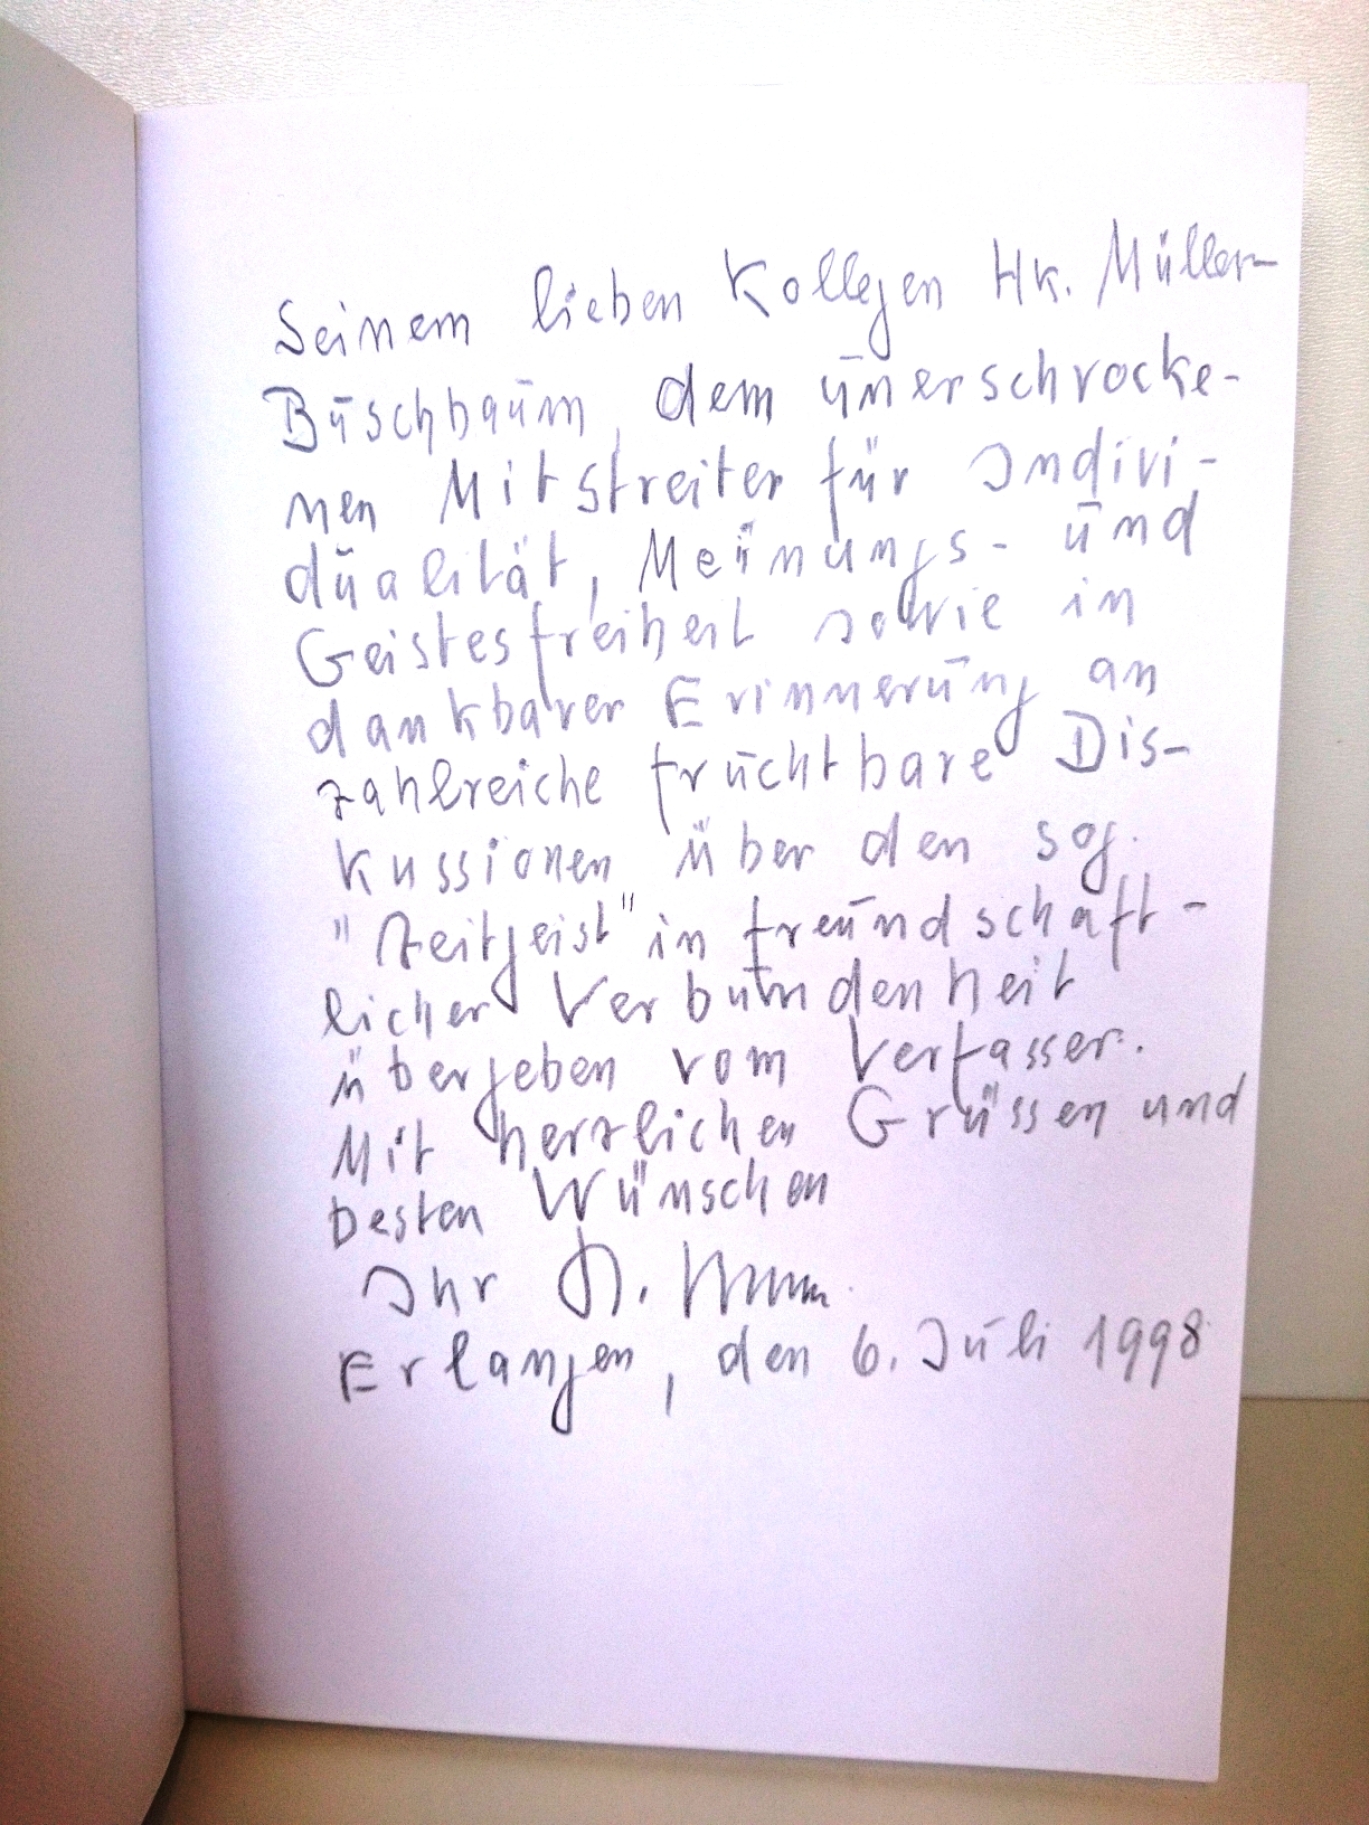 Seinem lieben Kollegen Hk. Müller-
Buschbaum, dem unerschrocke-
nen Mitstreiter für Indivi-
dualität, Meinungs- und
Geistesfreiheit sowie in
dankbarer Erinnerung an
zahlreiche fruchtbare Dis-
kussionen über den sog.
"Zeitgeist" in freundschaft-
licher Verbundenheit
übergeben vom Verfasser.
Mit herzlichen Grüssen und
besten Wünschen
Ihr
Erlangen, den 6. Juli 1998